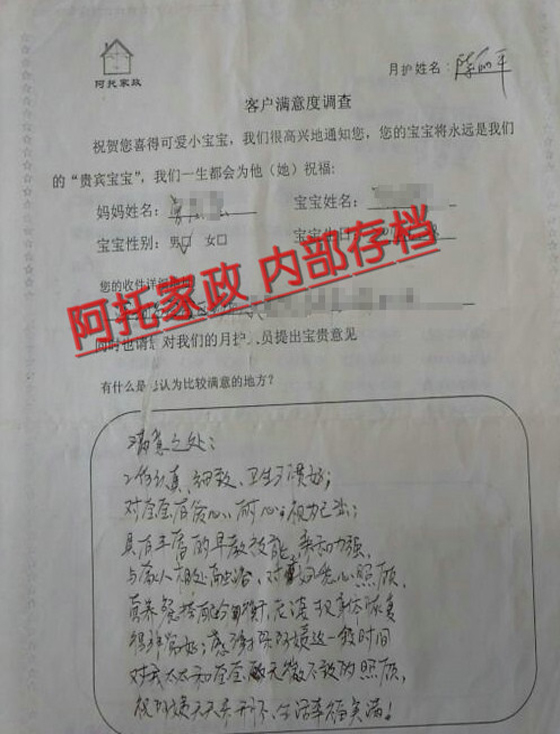 阿托家政
月护姓名:
客户满意度调查
祝贺您喜得可爱小宝宝，我们很高兴地通知您，您的宝宝将永远是我们
的“贵宾宝宝”，我们一生都会为他（她）祝福:
妈妈姓名: 宝宝姓名:
宝宝性别: 男□ 女□ 宝宝生日
您的收件详细
阿托家政 内部存档
同时也请 对我们的月护 员提出宝贵意见
有什么是 认为比较满意的地方?
满意之处:
工作认真、细致、卫生习惯好;
对宝宝有爱心、耐心、视为己出;
具有丰富的早教技能, 亲和力强,
与家人相处融洽、对 照顾,
营养餐搭配均衡, 身体恢复
得非常好; 感谢陈阿姨这一段时间
对我太太和宝宝 无微不致的照顾,
祝阿姨天天开开怀、生活幸福美满!